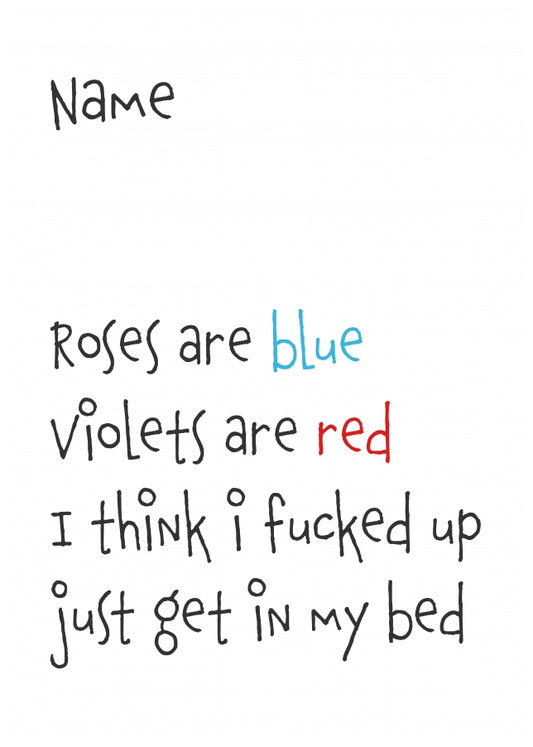 Name
Roses are blue
Violets are red
I think i fucked up
just get in my bed